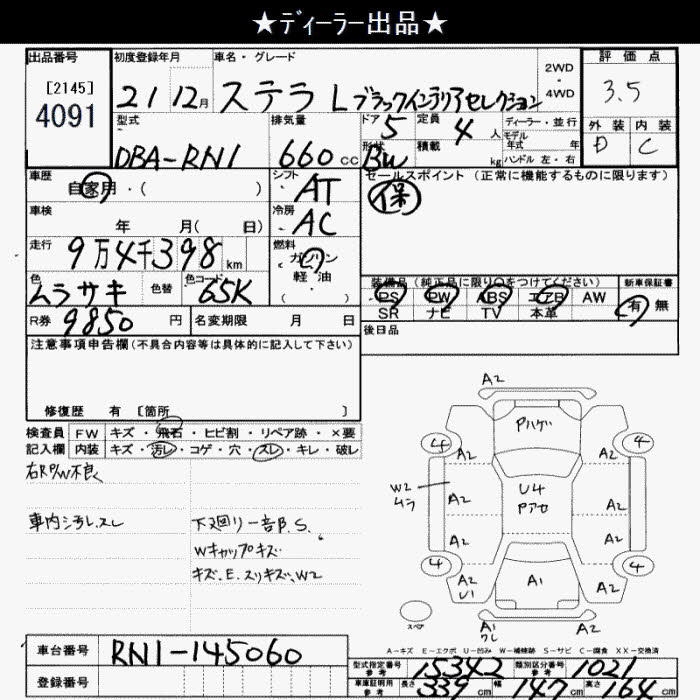 ★ディーラー出品★
出品番号 初度登録年月 車名・グレード 評価点
[2145] 2WD
4091 21 12月 ステラ Lブラックインテリアセレクション ・4WD 3.5
型式 排気量 ドア 5 定員 4人 ディーラー・並行 外装 内装
モデル年式 年
DBA-RN1 660cc 形状 BW 積載 kg ハンドル 左・右 D C
車歴 シフト セールスポイント(正常に機能するものに限ります)
自家用・( ) AT 保
車検 冷房
年 月( 日) AC
走行 燃料
9万4千398km ガソリン
軽油
・( )
色 色替 色コード 装備品(純正品に限り○をつけてください) 新車保証書
ムラサキ 65K PS PW ABS エアB AW 有 無
SR ナビ TV 本革
R券 9850円 名変期限 月 日 後日品
注意事項申告欄(不具合内容等は具体的に記入して下さい)
修復歴 有 [箇所 ]
検査員 FW キズ・飛石・ヒビ割・リペア跡・×要
記入欄 内装 キズ・汚レ・コゲ・穴・スレ・キレ・破レ
右RP/W不良
車内汚レ、スレ 下廻リ一部P.S.
Wキャップキズ
キズ、E、スリキズ、W2
A2
Pハゲ
4 4
A2 A2
W2 ムラ A2 U4 Pアセ A2
A2 A2
4 4
A2 U1 A1 A2
スペア A1 ワレ A2
A-キズ E-エクボ U-凹み W-補修跡 S-サビ C-腐食 XX-交換済
車台番号 RN1-145060
型式指定番号 参考 15342 類別区分番号 参考 1021
登録番号 車庫証明用 参考 長さ 339cm 幅 147cm 高さ 164cm